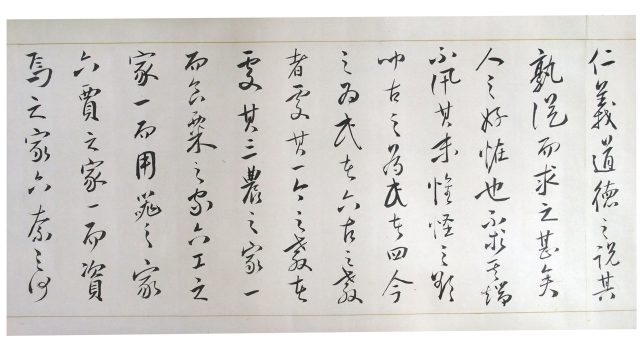 仁義道德之說其
孰從而求之甚矣
人之好恠也不求其端
不訊其末惟怪之欲
聞古之為民者四今
之為民者六古之教
者處其一今之教者
處其三農之家一
而食粟之家六工之
家一而用器之家
六賈之家一而資
焉之家六奈之何